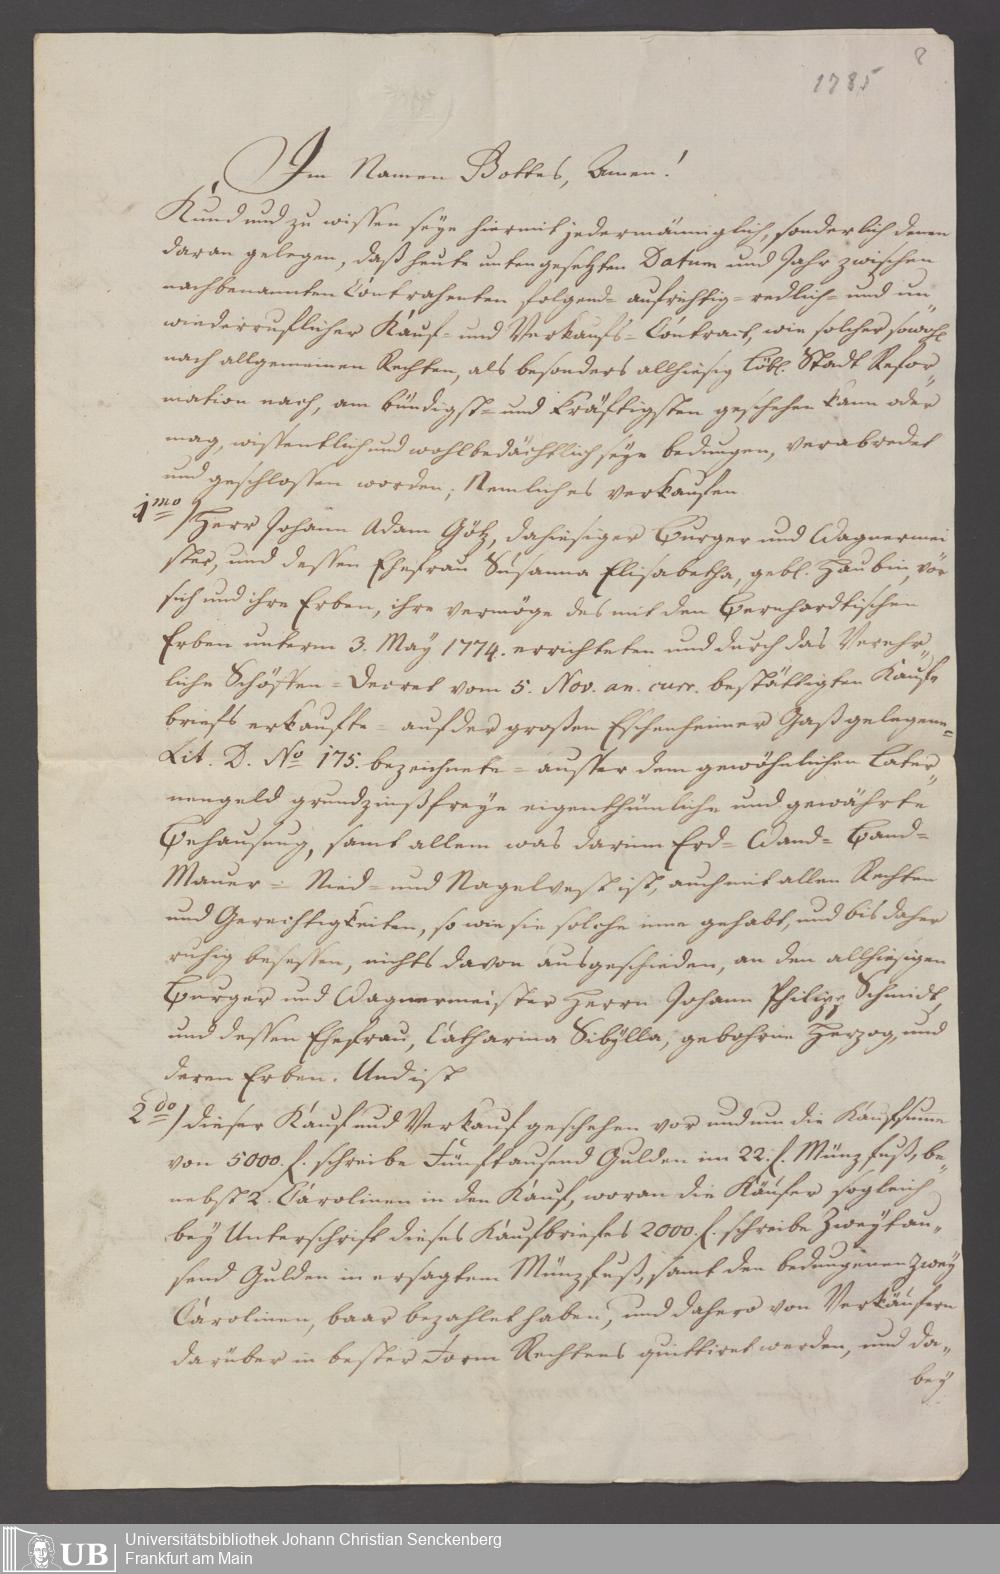 8
1785
Im Namen Gottes, Amen!
Kund und zu wissen seye hiermit jedermänniglich, sonderlich denen
daran gelegen, daß heute untengesetzten Datum und Jahr zwischen
nachbenannten Contrahenten folgend- aufrichtig- redlich- und un„
wiederruflicher Kauf- und Verkaufs-Contract, wie solcher sowohl
nach allgemeinen Rechten, als besonders allhiesig Löbl. Stadt Refor„
mation nach, am bündigst- und kräftigsten geschehen kann oder
mag, wissentlich und wohlbedächtlich seye bedungen, verabredet
und geschlossen worden; Nemlich es verkaufen
1mo) Herr Johann Adam Götz, dahiesiger Burger und Wagnermei
ster, und dessen Ehefrau Susanna Elisabetha, gebl. Haubin, vor
sich und ihre Erben, ihre vermöge des mit den Bernhardtischen
Erben unterm 3. May 1774. errichteten und durch das Verehr„
liche Schöffen-Decret vom 5. Nov. an. curr. bestättigten Kauf„
briefs erkaufte- auf der großen Eschenheimer Gaß gelegene-
Lit. D. No 175. bezeichnete- ausser dem gewöhnlichen Later„
nengeld grundzinßfreye eigenthümliche und gewährte
Behausung, samt allem was darinn Erd- Wand- Band-
Mauer- Nied- und Nagelvest ist, auch mit allen Rechten
und Gerechtigkeiten, so wie sie solche inne gehabt, und bis daher
ruhig besessen, nichts davon ausgeschieden, an den allhiesigen
Burger und Wagnermeister Herrn Johann Philipp Schmidt,
und dessen Ehefrau, Catharina Sibÿlla, gebohrne Herzog, und
deren Erben. Und ist
2do) dieser Kauf und Verkauf geschehen vor und um die Kaufsumme
von 5000. f. schreibe Fünftausend Gulden im 22. f. Münzfuß, be„
nebst 2. Carolinen in den Kauf, woran die Käufer sogleich
bey Unterschrift dieses Kaufbriefes 2000. f. schreibe Zweytau„
send Gulden in ersagtem Münzfuß, samt den bedungenen zwey
Carolinen, baar bezahlet haben, und dahero von Verkäufern
darüber in bester Form Rechtens quittiret werden, und da„
bey
UB
Universitätsbibliothek Johann Christian Senckenberg
Frankfurt am Main